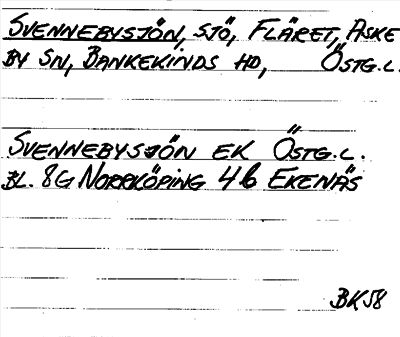 SVENNEBYSJÖN, SJÖ, FLÄRET, ASKE
BY SN, BANKEKINDS HD, ÖSTG.L.
SVENNEBYSJÖN EK ÖSTG.L.
BL. 8G NORRKÖPING 4b EKENÄS
BK58